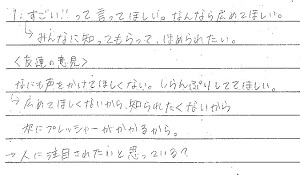 1:すごい!!って言ってほしい。なんなら広めてほしい。
↳みんなに知ってもらって、ほめられたい。
〈友達の意見〉
なにも声をかけてほしくない。しらんぷりしててほしい。
↳広めてほしくないから、知られたくないから
私にプレッシャーがかかるから。
→人に注目されたいと思っている?